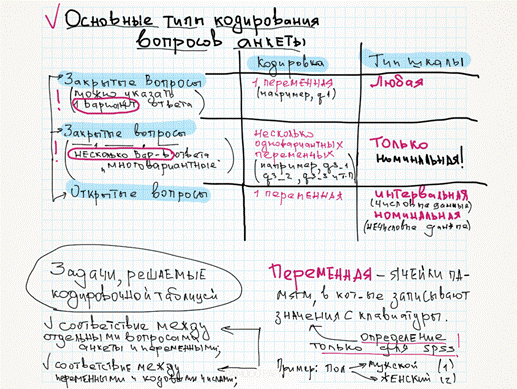 ✓ Основные типы кодирования
вопросов анкеты
Кодировка
Тип шкалы
Закрытые вопросы
(можно указать
1 вариант ответа)
!
1 переменная
(например, q1)
Любая
Закрытые вопросы
(несколько вар-в ответа
"многовариантные")
!
несколько
одновариантных
переменных
(например, q3_1
q3_2, q3_3 и т.п)
Только
номинальная!
Открытые вопросы
1 переменная
интервальная
(числовые данные)
номинальная
(нечисловые данные)
Задачи, решаемые
кодировочной таблицей
✓ соответствие между
отдельными вопросами
анкеты и переменными;
✓ соответствие между
переменными и кодовыми числами;
Переменная – ячейки па-
мяти, в кот-ые записывают
значения с клавиатуры.
определение
только для SPSS!
Пример: Пол
мужской (1)
женский (2)